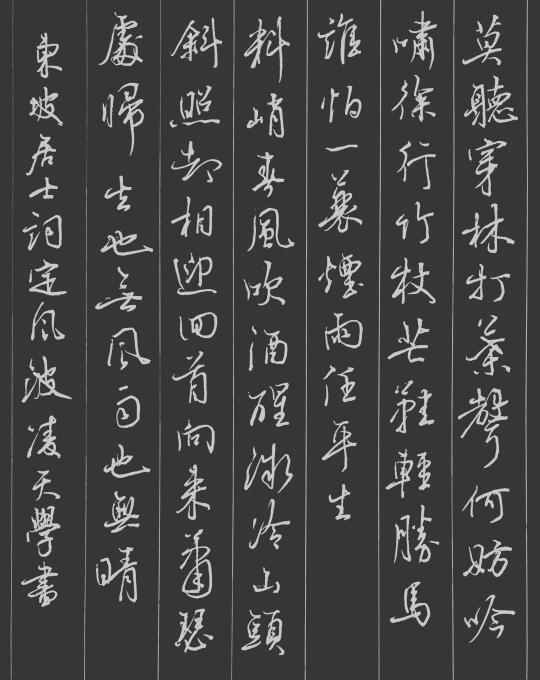 莫聽穿林打葉聲何妨吟
嘯徐行竹杖芒鞋輕勝馬
誰怕一蓑煙雨任平生
料峭春風吹酒醒微冷山頭
斜照却相迎回首向來蕭瑟
處歸去也無風雨也無晴
東坡居士詞定风波凌天學書